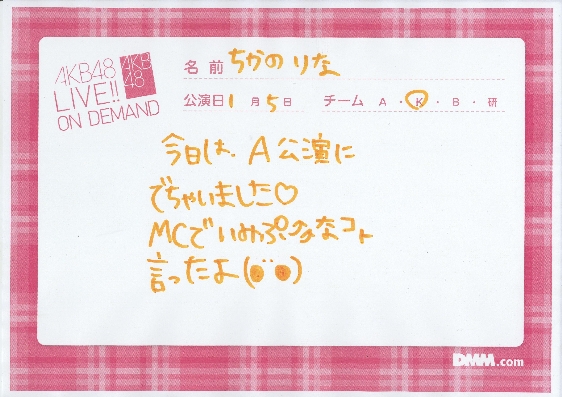 AKB48
LIVE!!
ON DEMAND
AKB
48
名前 ちかの りな
公演日 1月5日 チーム A・K・B・研
今日は、A公演に
でちゃいました♡
MCで いみぷーなコト
言ったよ(●¨●)
DMM.com